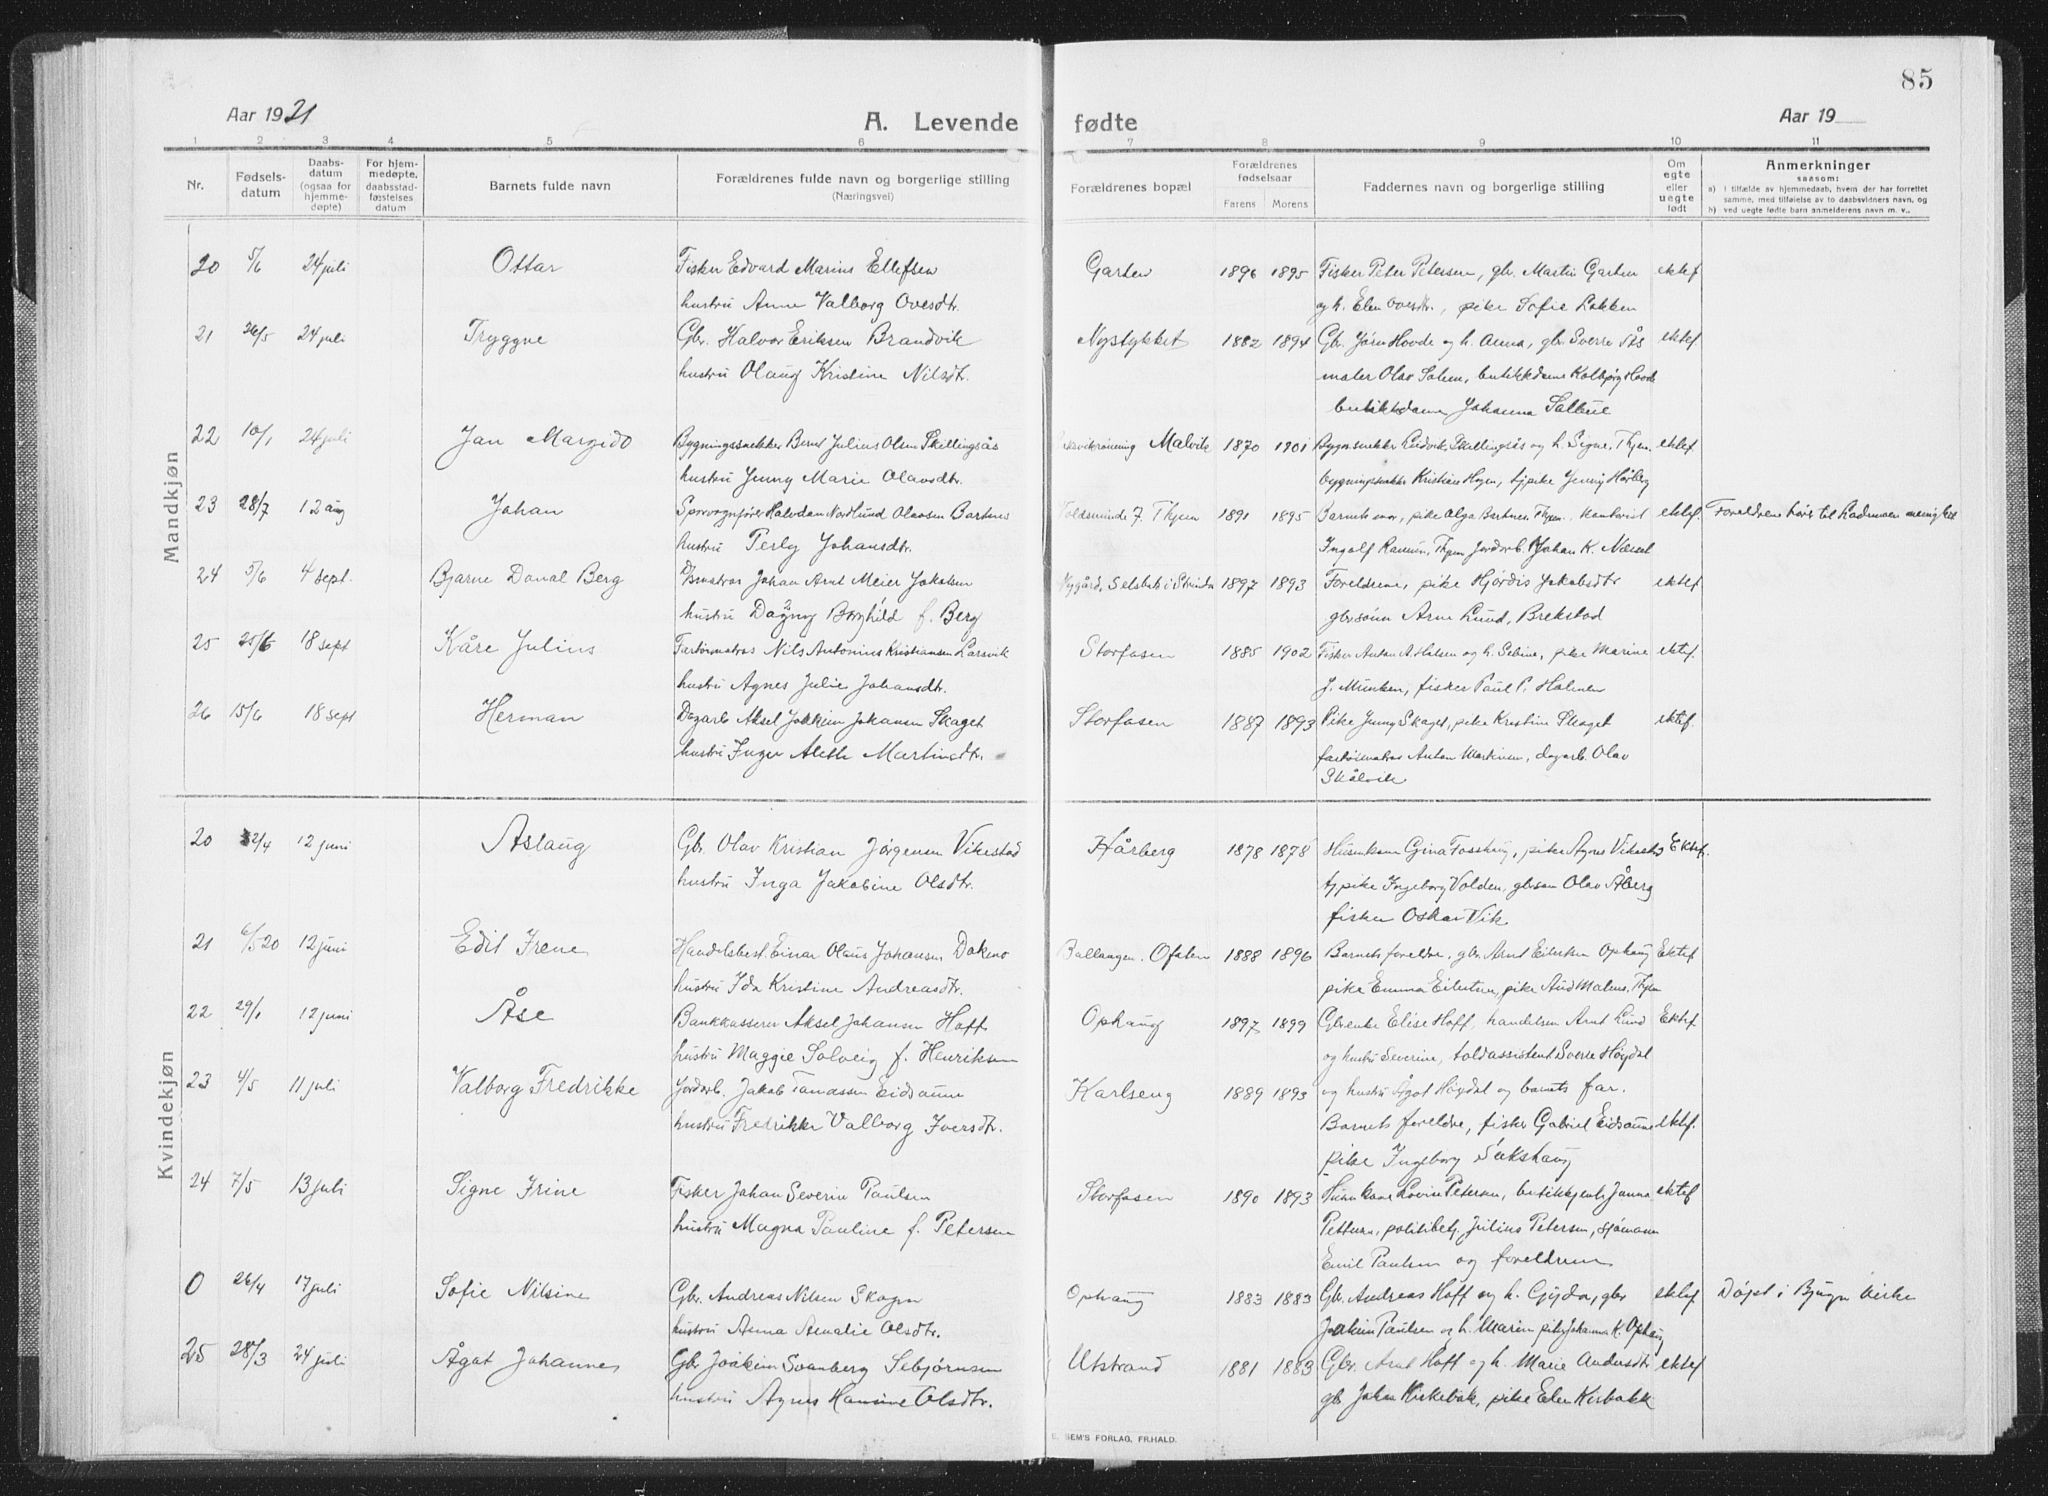 85
Aar 1921
A. Levende fødte
Aar 19
1 2 3 4 5 6 7 8 9 10 11
Nr.
Fødsels-
datum
Daabs-
datum
(ogsaa for
hjemme-
døpte)
For hjem-
medøpte,
daabsstad-
fæstelses
datum
Barnets fulde navn
Forældrenes fulde navn og borgerlige stilling
(Næringsvei)
Forældrenes bopæl
Forældrenes
fødselsaar
Farens Morens
Faddernes navn og borgerlige stilling
Om
egte
eller
uegte
født
Anmerkninger
saasom:
a) i tilfælde av hjemmedaab, hvem der har forrettet
samme, med tilføielse av to daabsvidners navn, og
b) ved uegte fødte barn anmelderens navn m. v..
Mandkjøn
20 5/6 24 juli Ottar Fisker Edvard Marius Ellefsen Garten 1896 1895 Fisker Peter Petersen, gbr. Martin Garten ektef
hustru Anna Valborg Ovesdtr. og h. Elen Ovesdtr., pike Sofie Løkken
21 26/5 24 juli Tryggve Gbr. Halvor Eriksen Brandvik Nystykket 1882 1894 Gbr. Jørn Hovde og h. Anna, gbr. Sverre Ås ektef
hustru Olaug Kristine Nilsdtr. maler Olav Solem, butikkdame Kolbjørg Hovde
butikkdame Johanna
22 10/1 24 juli Jan Margido Bygningssnekker Bernt Julius Olsen Skillingsås Malvik 1870 1901 Bygn.snekker Ludvik Skillingsås og h. Signe, Thjem ektef
hustru Jenny Marie Olavsdtr. bygningssnekker Kristian Hogen, tjpike Jenny Hårberg
23 28/7 12 aug Johan Sporvognfører Halvdan Nordlund Olavsen Bartnes 7. Thjem 1891 1895 Barnets mor, pike Olga Bartnes, Thjem, kontorist ektef. Foreldrene hører til Lademoen menighet
hustru Perly Johansdtr. Ingolf, Thjem Jordarb. Johan K. Næssel
24 5/6 4 sept. Bjarne Donal Berg Johan Arnt Meier Jakobsen Nygård, Selsbak i Strinda 1897 1893 Foreldrene, pike Hjørdis Jakobsdtr ektef
hustru Dagny Borghild f. Berg gbrsønn Arne Lund, Brekstad
25 25/6 18 sept Kåre Julius Fartøimatros Nils Antonius Kristiansen Larsvik Storfosen 1885 1902 Fisker Anton A. Halsen og h. Sebine, pike Marine ektef.
hustru Agnes Julie Johansdtr. J. Munken, fisker Paul P. Holmen
26 15/6 18 sept Herman Dagarb Aksel Joakim Johansen Skaget Storfosen 1887 1893 Pike Jenny Skaget, pike Kristine Skaget ektef.
hustru Inger Aleth Martinsdtr. fartøimatros Anton Martinsen, dagarb. Olav
Skålvik
Kvindekjøn
20 2/4 12 juni Aslaug Gbr. Olav Kristian Jørgensen Vikestad Hårberg 1878 1878 Husmkone Gina, pike Agnes Ektef.
hustru Inga Jakobine Olsdtr. tjpike Ingeborg Volden, gbrsøn Olav Åberg
fisker Oskar Vik.
21 6/5 20 12 juni Edit Irene Handelsbest. Einar Olaus Johansen Dakmo Ballangen, Ofoten 1888 1896 Barnets foreldre, gbr. Arnt Eilertsen Ophaug Ektef
hustru Ida Kristine Andreasdtr. pike Emma Eilertsen, pike Aud, Thjem
22 29/1 12 juni Åse Bankkasserer Aksel Johansen Hoff Ophaug 1897 1899 Gbrenke Elise Hoff, handelsm Arnt Lund Ektef
hustru Maggie Solveig f. Henriksen og hustru Severine, toldassistent Sverre Høydal
23 4/5 11 juli Valborg Fredrikke Jordarb. Jakob Tomassen Eidsaune Karlseng 1889 1893 og hustru Ågot Høydal og barnets far.
hustru Fredrikke Valborg Iversdtr. Barnets foreldre, fisker Gabriel Eidsaune ektef.
pike Ingeborg Sakshaug
24 7/5 13 juli Signe Irine Fisker Johan Severin Paulsen Storfosen 1890 1893 Husmkone Lovise Petersen, butikkjente Janna ektef
hustru Magna Pauline f. Petersen Petersen, politibetj. Julius Petersen, sjømann
Emil Paulsen og foreldrene
0 26/4 17 juli Sofie Nilsine Gbr. Andreas Nilsen Skagen Ophaug 1883 1883 Gbr. Andreas Hoff og h. Gyda, gbr ektef Døpt i Bjugn kirke
hustru Anna Amalie Olsdtr. Joakim Paulsen og h. Marie, pike Johanna K. Ophaug
25 28/3 24 juli Ågot Johannes Gbr Joakim Svanberg Sebjørnsen Utstrand 1881 1883 Gbr. Arnt Hoff og h. Marie Andersdtr ektef
hustru Agnes Hansine Olsdtr. gbr Johan Kirkebak, pike Elen Kirkebakk
E. SEM'S FORLAG, FR.HALD.